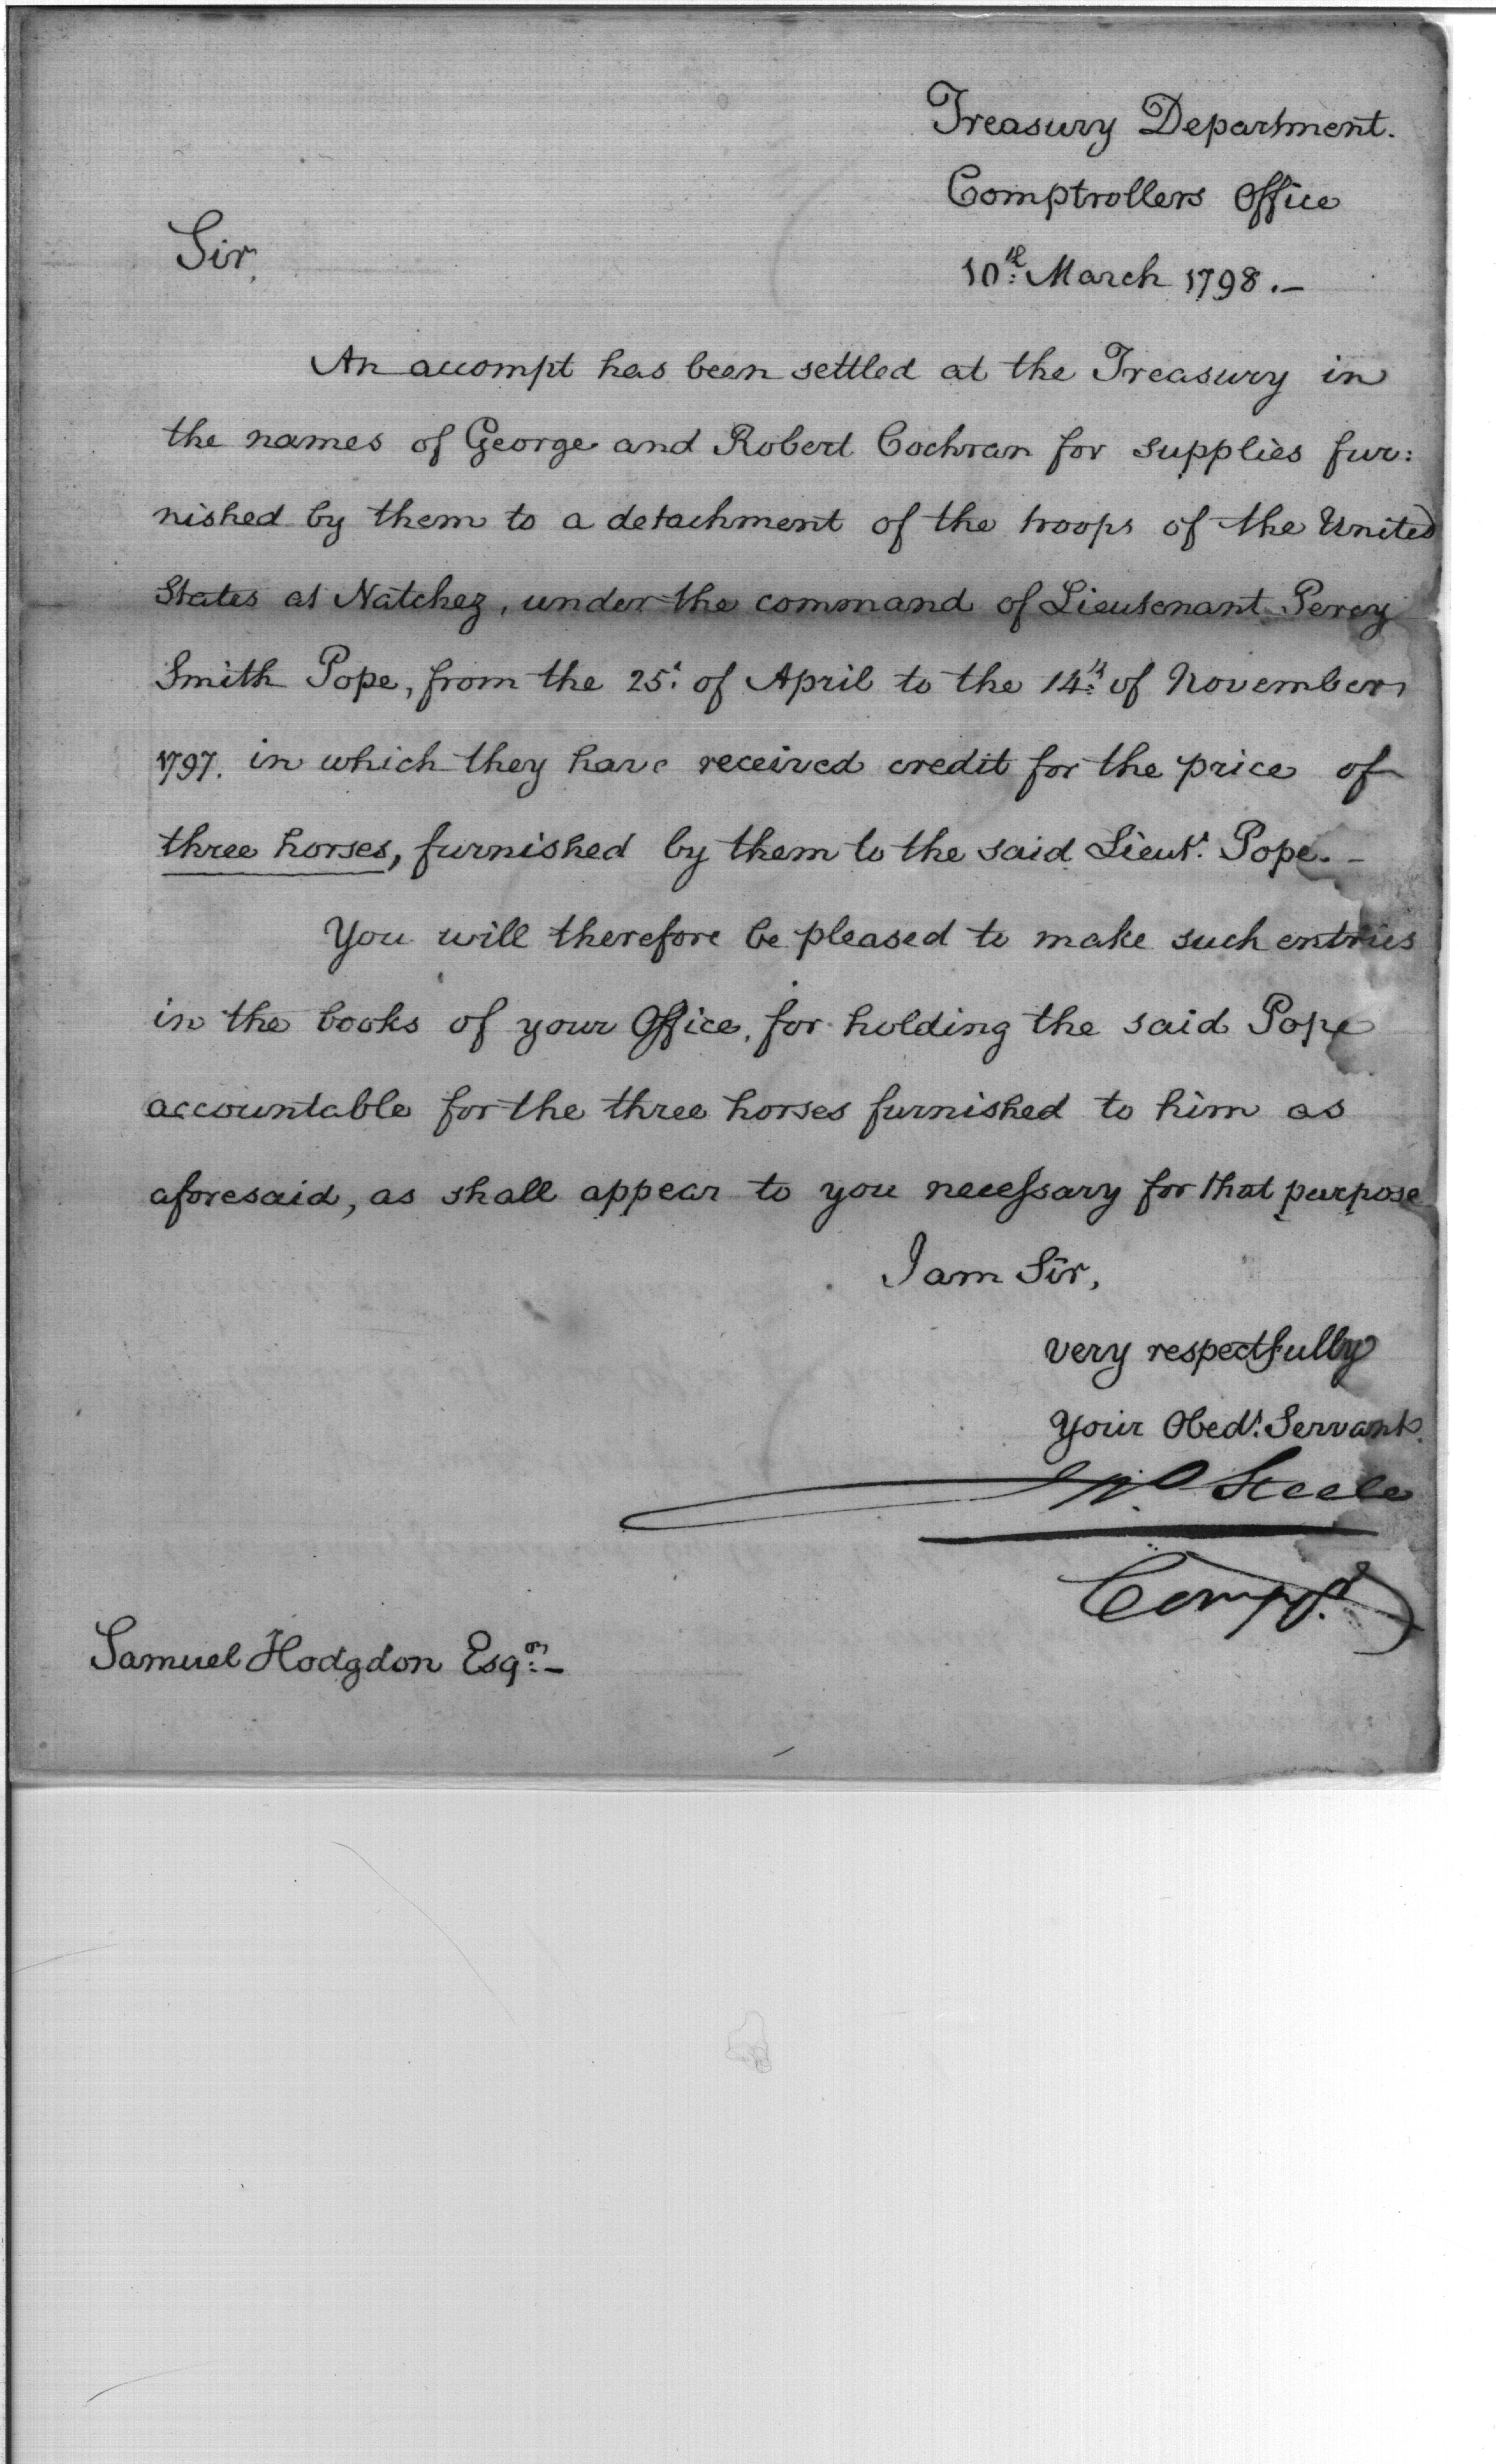 Treasury Department.
Comptrollers Office
Sir,
10th March 1798.—
An accompt has been settled at the Treasury in
the names of George and Robert Cochran for supplies fur:
nished by them to a detachment of the troops of the United
States at Natchez, under the command of Lieutenant Percy
Smith Pope, from the 25t of April to the 14th of November
1797. in which they have received credit for the price of
three horses, furnished by them to the said Lieut. Pope.—
You will therefore be pleased to make such entries
in the books of your Office, for holding the said Pope
accountable for the three horses furnished to him as
aforesaid, as shall appear to you necessary for that purpose
I am Sir,
very respectfully
Your Obedt. Servant.
Jno Steele
Compr.
Samuel Hodgdon Esqr.—